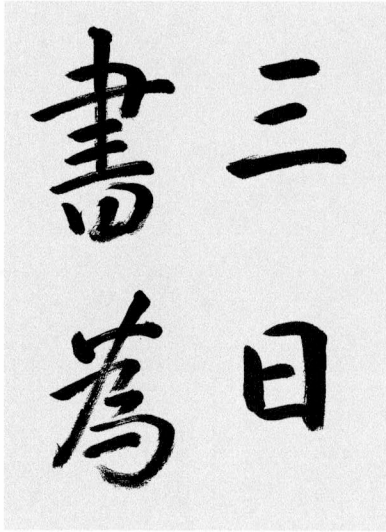 三日
書為